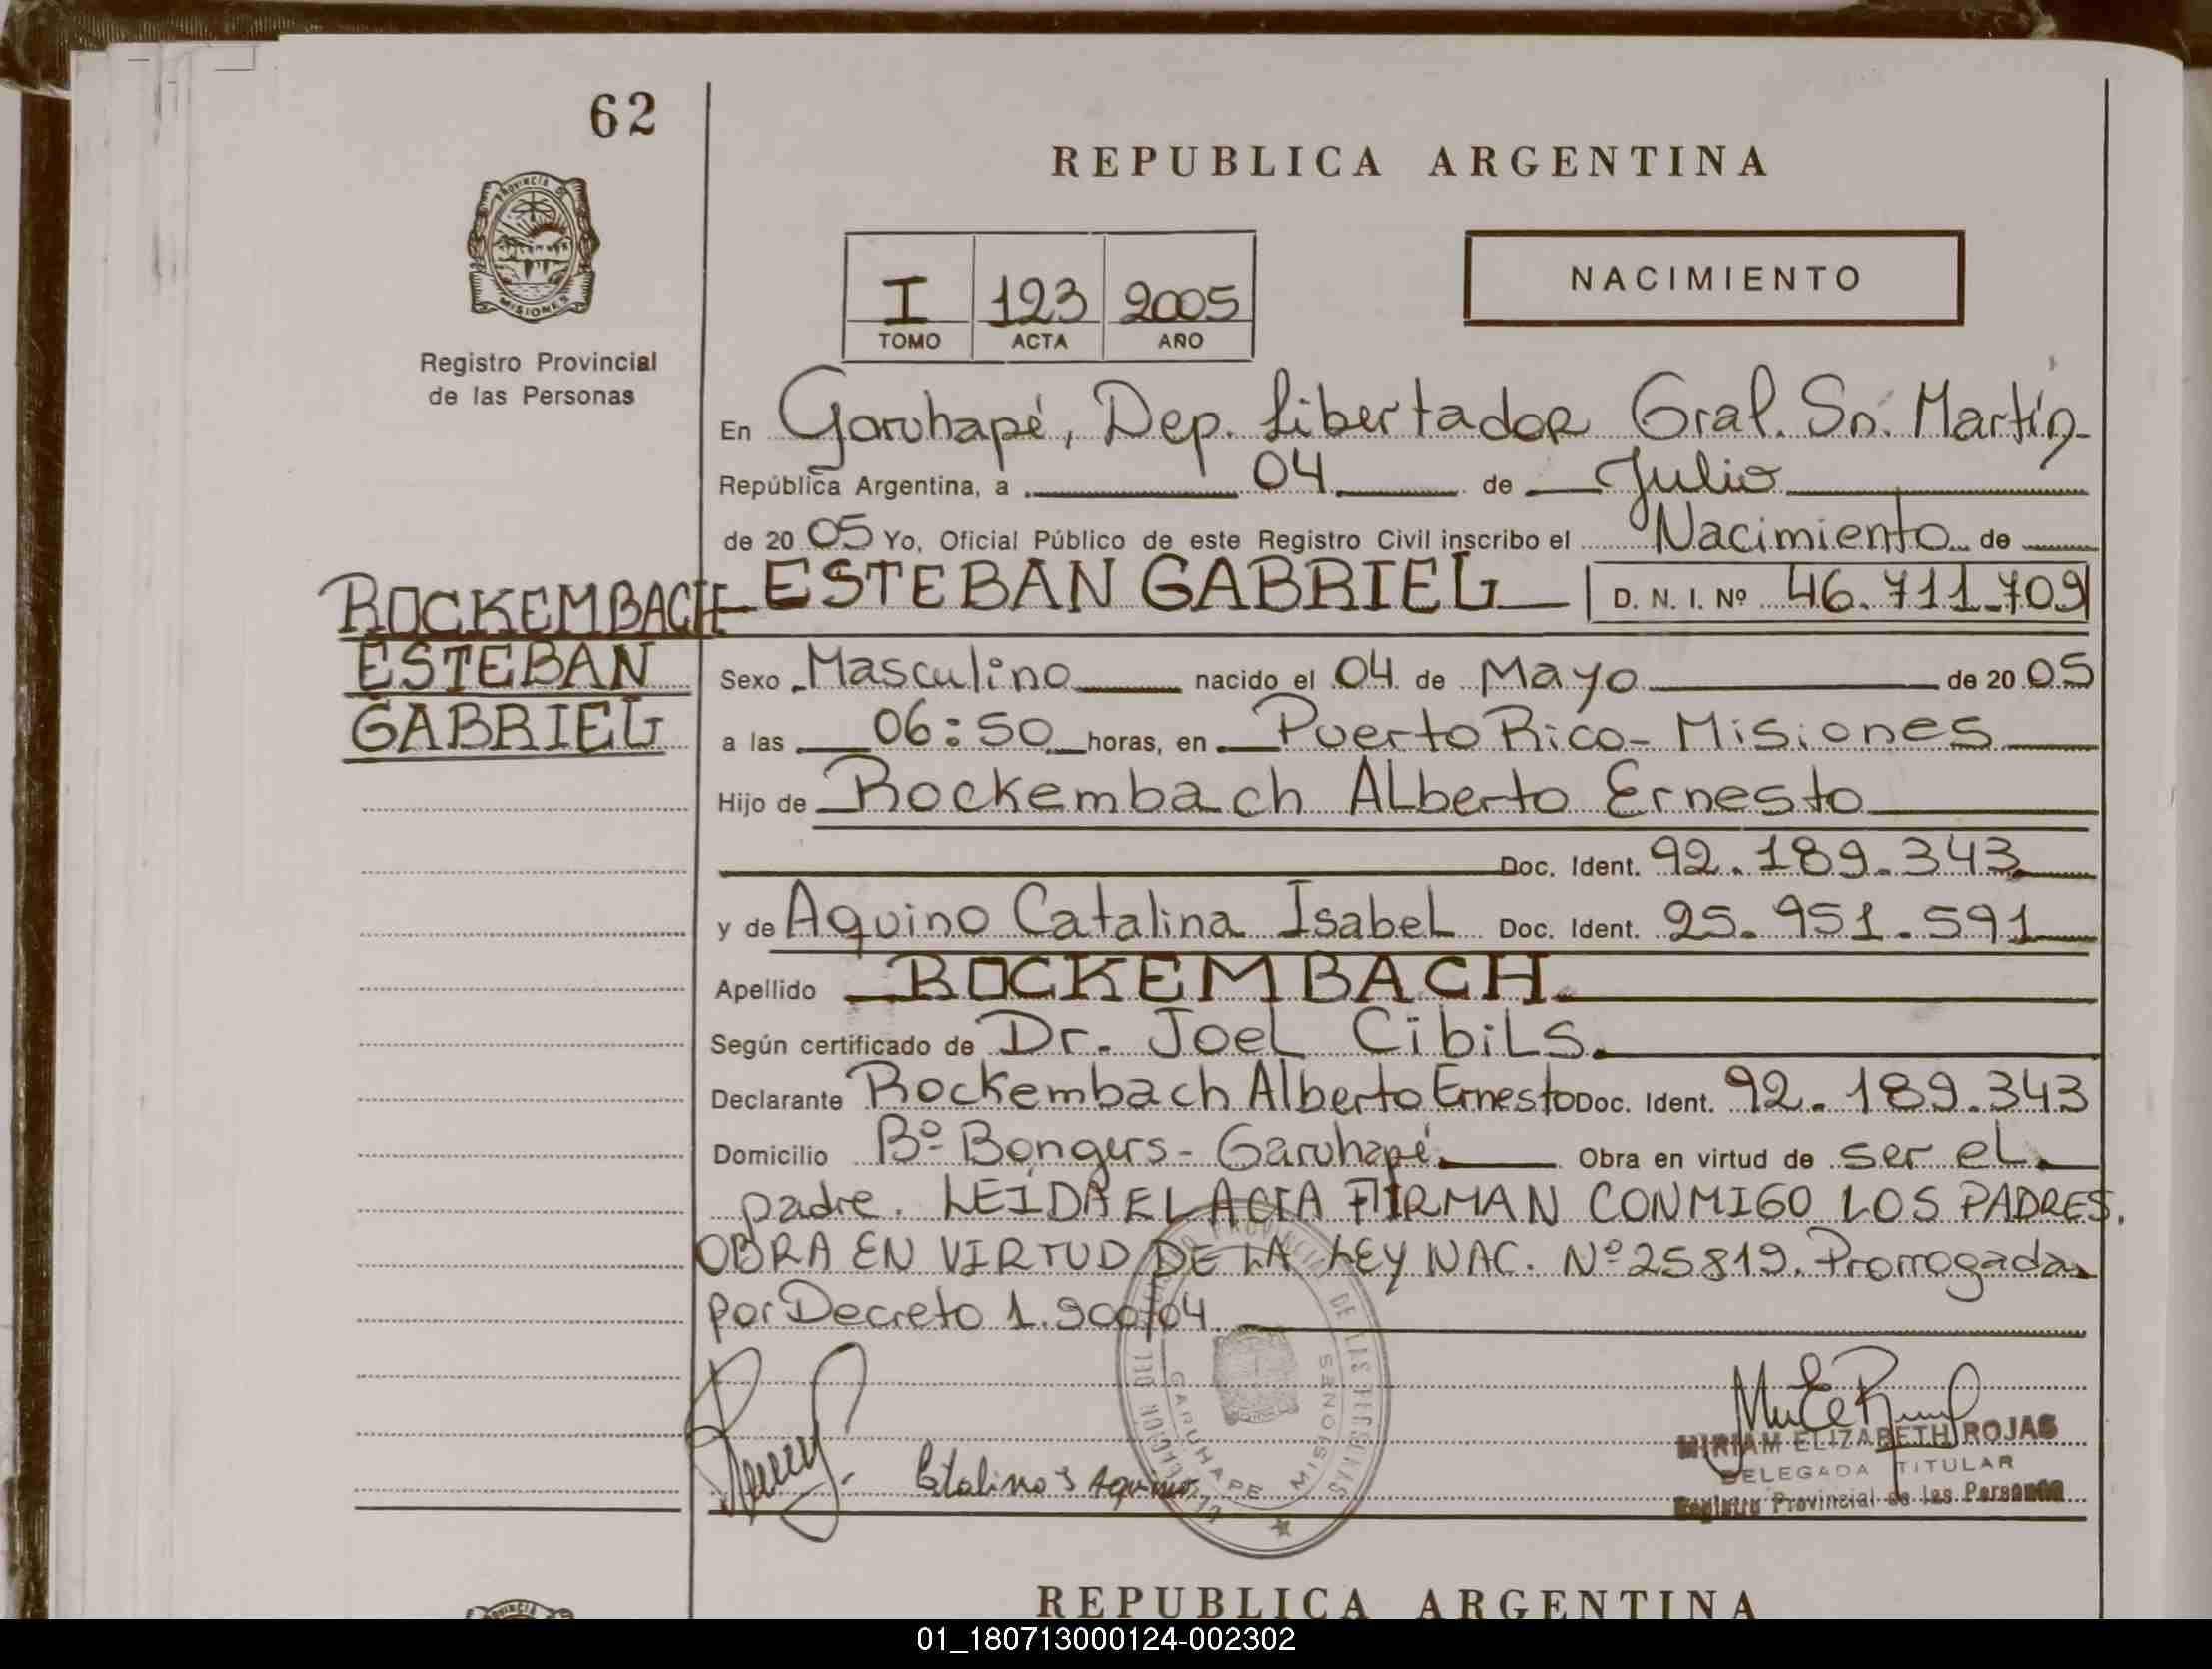 62
REPUBLICA ARGENTINA
PROVINCIA DE
MISIONES
Registro Provincial
de las Personas
NACIMIENTO
I 123 2005
TOMO ACTA AÑO
En Garuhapé, Dep. Libertador Gral. Sn. Martín
República Argentina, a 04 de Julio
de 20 05 Yo, Oficial Público de este Registro Civil inscribo el Nacimiento de
ESTEBAN GABRIEL D. N. I. Nº 46.711.709
ROCKEMBACH
ESTEBAN
GABRIEL
Sexo Masculino nacido el 04 de Mayo de 20 05
a las 06:50 horas, en Puerto Rico - Misiones
Hijo de Rockembach Alberto Ernesto
Doc. Ident. 92.189.343
y de Aquino Catalina Isabel Doc. Ident. 25.951.591
Apellido ROCKEMBACH
Según certificado de Dr. Joel Cibils.
Declarante Rockembach Alberto Ernesto Doc. Ident. 92.189.343
Domicilio Bº Bongers - Garuhapé. Obra en virtud de ser el
padre. LEIDA EL ACTA FIRMAN CONMIGO LOS PADRES.
OBRA EN VIRTUD DE LA LEY NAC. Nº 25819. Prorrogada
por Decreto 1.900/04.
DE LAS PERSONAS
GARUHAPE MISIONES
Catalina I Aquino
MIRIAM ELIZABETH ROJAS
DELEGADA TITULAR
Registro Provincial de las Personas
REPUBLICA ARGENTINA
01_180713000124-002302